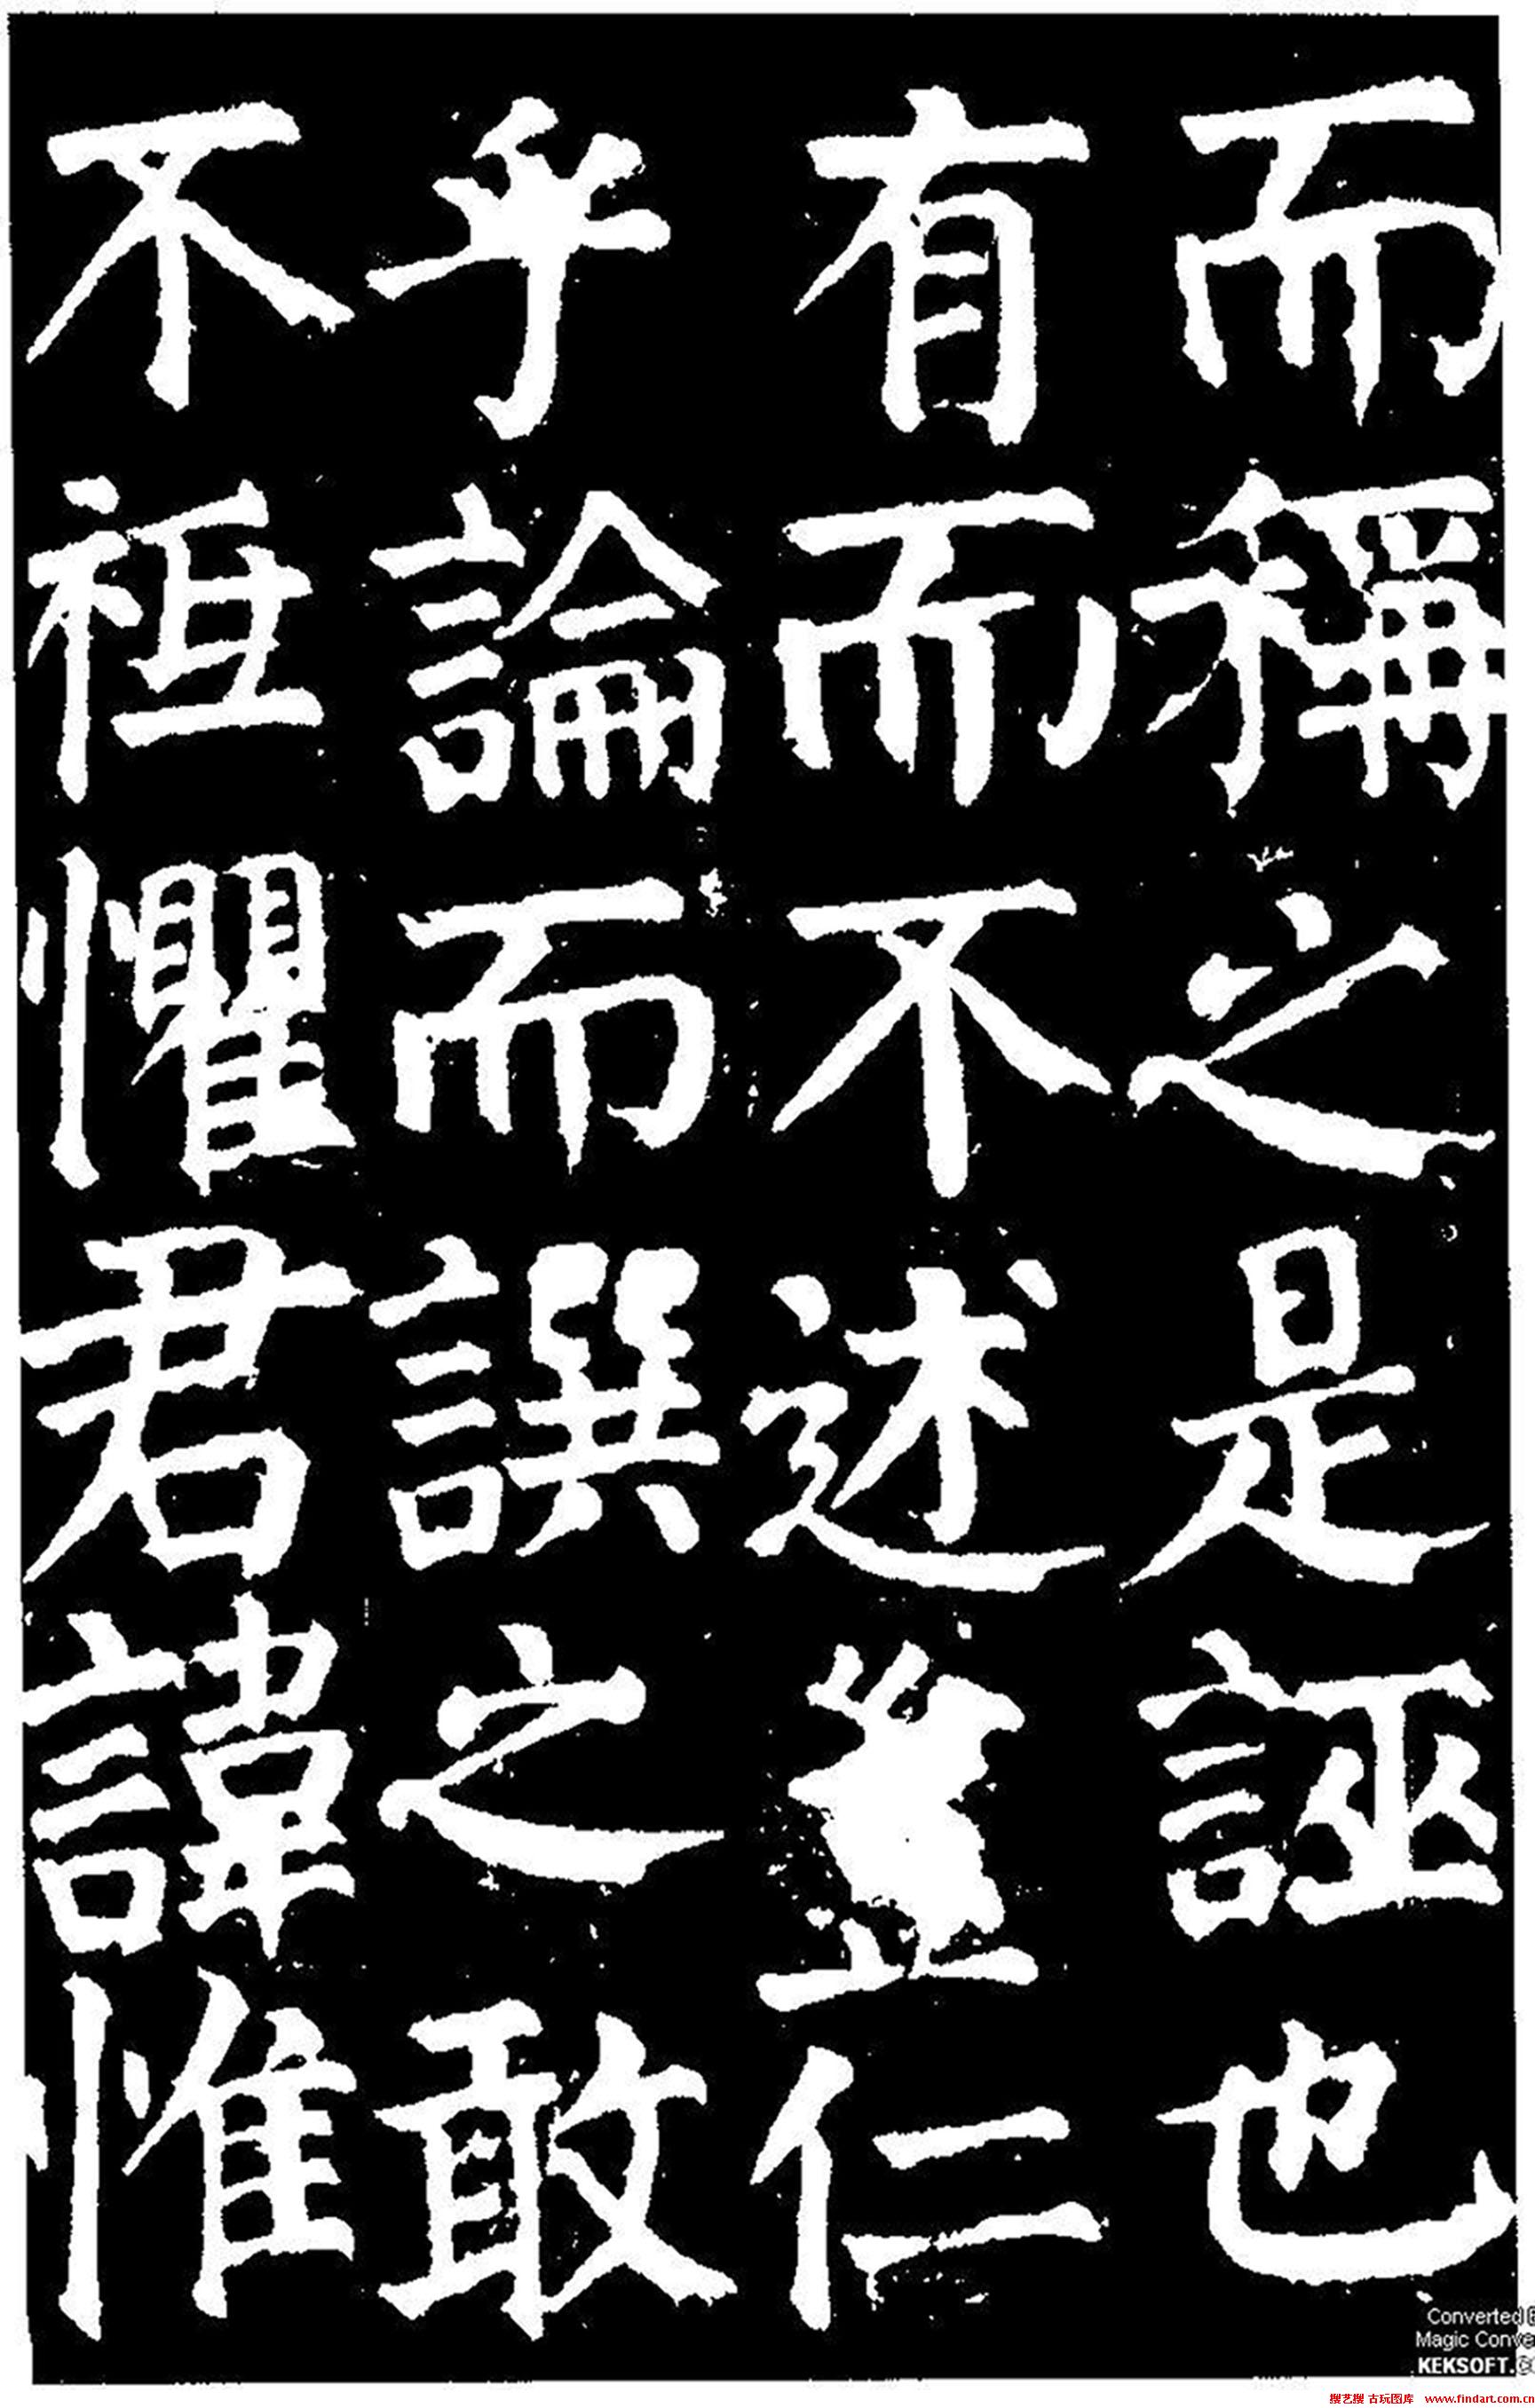 而稱之是誣也
有而不述豈仁
乎論而譔之敢
不祗懼君諱惟
Converted
Magic Conve
KEKSOFT.
搜艺搜 古玩图库 www.findart.com.cn